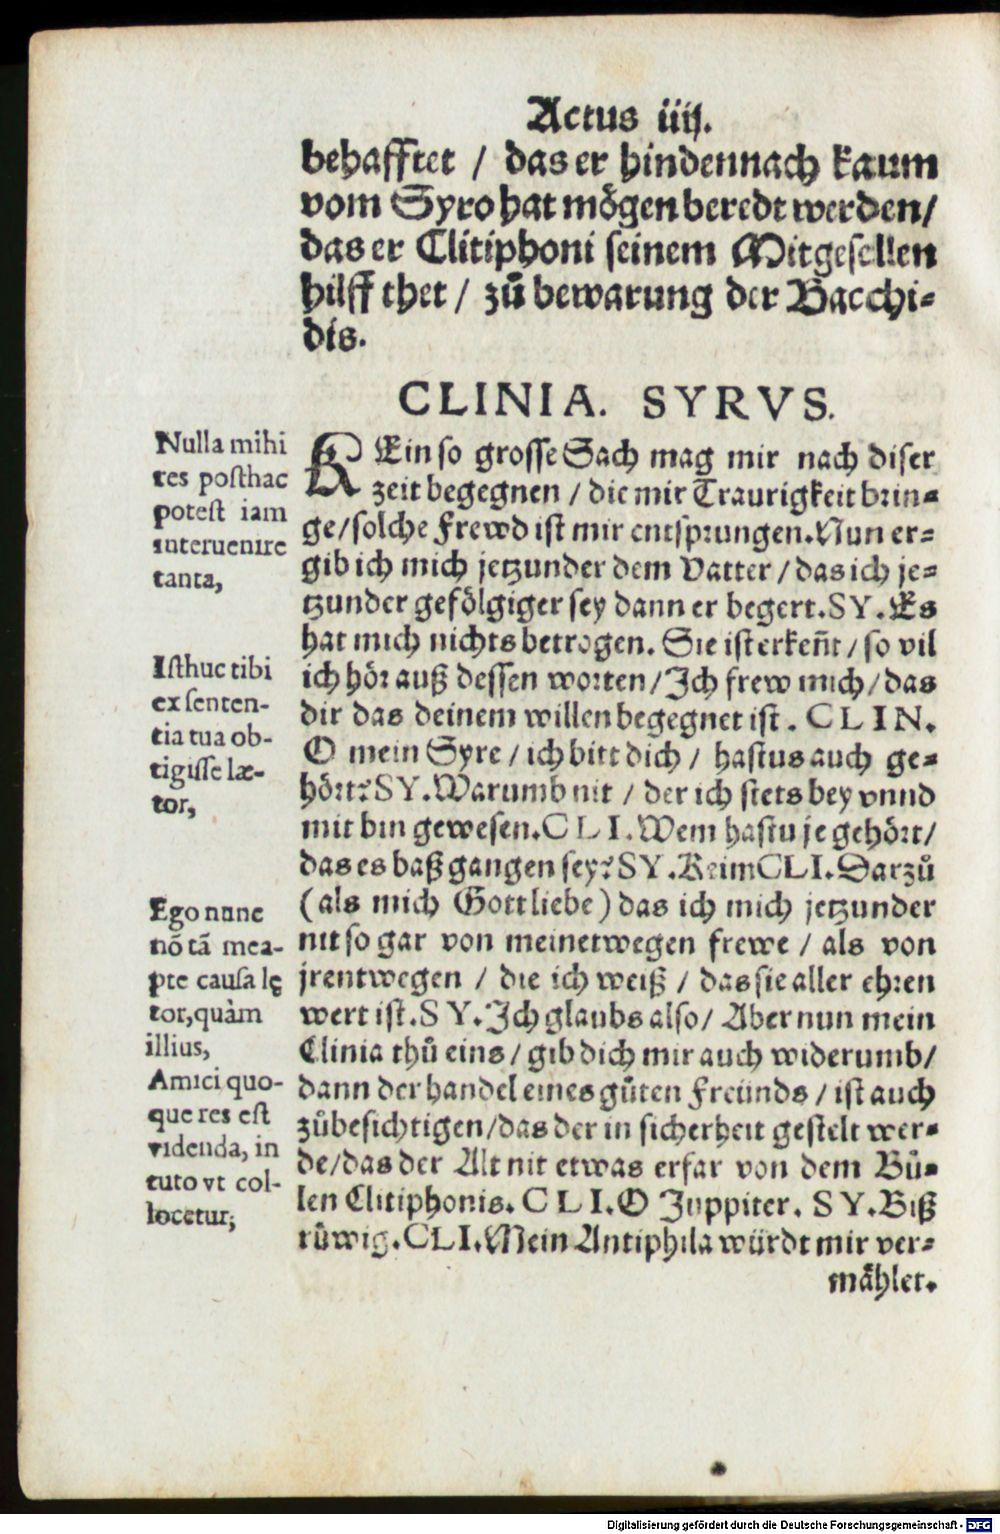 Actus iiij.
behafftet / das er hindennach kaum
vom Syro hat mögen beredt werden/
das er Clitiphoni seinem Mitgesellen
hilff thet / zů bewarung der Bacchi-
dis.
CLINIA. SYRVS.
KEin so grosse Sach mag mir nach diser
zeit begegnen / die mir Traurigkeit brin-
ge/solche Frewd ist mir entsprungen. Nun er-
gib ich mich jetzunder dem Vatter / das ich je-
tzunder gefölgiger sey dann er begert. SY. Es
hat mich nichts betrogen. Sie ist erkeñt / so vil
ich hör auß dessen worten / Ich frew mich / das
dir das deinem willen begegnet ist. CLIN.
O mein Syre / ich bitt dich / hastus auch ge-
hört? SY. Warumb nit / der ich stets bey vnnd
mit bin gewesen. CLI. Wem hastu je gehört/
das es baß gangen sey? SY. Keim CLI. Darzů
(als mich Gott liebe) das ich mich jetzunder
nit so gar von meinetwegen frewe / als von
jrentwegen / die ich weiß / das sie aller ehren
wert ist. SY. Ich glaubs also / Aber nun mein
Clinia thů eins / gib dich mir auch widerumb/
dann der handel eines gůten Freünds / ist auch
zůbesichtigen/das der in sicherheit gestelt wer-
de/das der Alt nit etwas erfar von dem Bů-
len Clitiphonis. CLI. O Juppiter. SY. Biß
růwig. CLI. Mein Antiphila würdt mir ver-
mählet.
Nulla mihi
res posthac
potest iam
interuenire
tanta,
Isthuc tibi
ex senten-
tia tua ob-
tigisse læ-
tor,
Ego nunc
nõ tã mea-
pte causa lę
tor, quàm
illius,
Amici quo-
que res est
videnda, in
tuto vt col-
locetur,
Digitalisierung gefördert durch die Deutsche Forschungsgemeinschaft - DFG